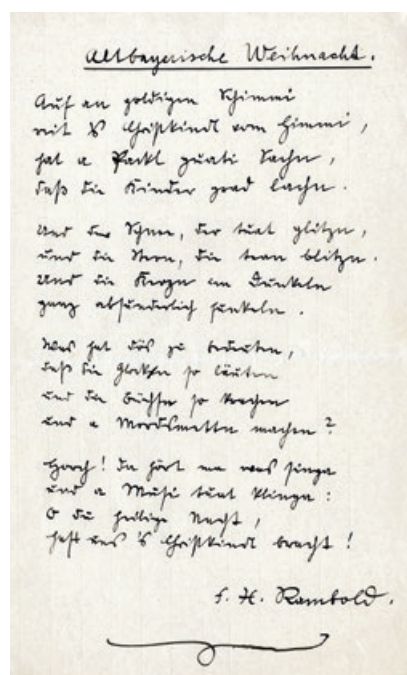 Altbayerische Weihnacht.
Auf an goldigen Schimmi
reit 's Christkindl vom Himmi,
hat a Packl guati Sachn,
daß die Kinder grad lachn.
Und der Schnee, der tuat glitzn,
und die Stern, die tean blitzn.
Und die Kerzn im Dunkeln
ganz absunderlich funkeln.
Was hat dös zu bedeuten,
daß die Glockn so läuten
und die Büchsn so krachen
und a Mordsmettn machen?
Horch! Da hört ma was singa
und a Musi tuat klinga:
O du heilige Nacht,
hast uns 's Christkindl bracht!
H. Rambold.